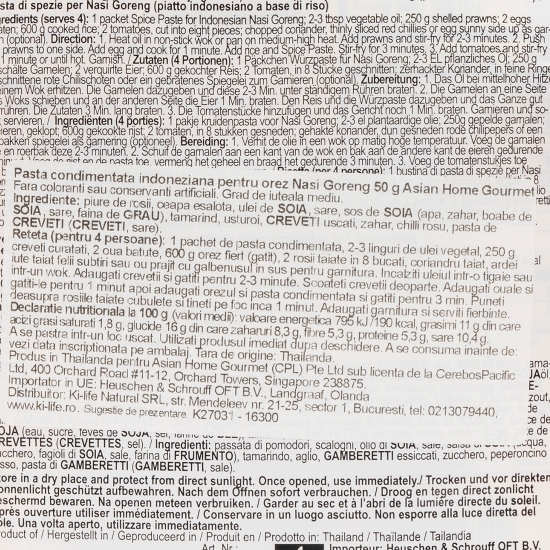 sta di spezie per Nasi Goreng (piatto indonesiano a base di riso)
gredients (serves 4): 1 packet Spice Paste for Indonesian Nasi Goreng; 2-3 tbsp vegetable oil; 250 g shelled prawns; 2 eggs
aten; 600 g cooked rice; 2 tomatoes, cut into eight pieces; chopped coriander, thinly sliced red chillies or egg sunny side up as gar-
(optional). Directions: 1. Heat oil in non-stick wok or pan on medium-high heat. Add prawns and stir-fry for 2-3 minutes. 2. Push
prawns to one side. Add egg and cook for 1 minute. Add rice and Spice Paste. Stir-fry for 3 minutes. 3. Add tomatoes and stir-fry
1 minute or until hot. Garnish. / Zutaten (4 Portionen): 1 Päckchen Würzpaste für Nasi Goreng; 2-3 EL pflanzliches Öl; 250 g
schälte Garnelen; 2 verquirlte Eier; 600 g gekochter Reis; 2 Tomaten, in 8 Stücke geschnitten; gehackter Koriander, in feine Ringe
schnittene rote Chilischoten oder ein gebratenes Spiegelei zum Garnieren (optional). Zubereitung: 1. Das Öl bei mittelhoher Hitze
einem Wok erhitzen. Die Garnelen dazugeben und diese 2-3 Min. unter ständigem Rühren braten. 2. Die Garnelen an eine Seite
s Woks schieben und an der anderen Seite die Eier 1 Min. braten. Den Reis und die Würzpaste dazugeben und das Ganze gut
rühren. Die Zutaten 3 Min. lang braten. 3. Die Tomatenstücke hinzufügen und das Gericht noch 1 Min. braten. Garnieren und so-
servieren. / Ingrediënten (4 porties): 1 pakje kruidenpasta voor Nasi Goreng; 2-3 el plantaardige olie; 250g gepelde garnalen;
eieren, geklopt; 600g gekookte rijst; 2 tomaten, in 8 stukken gesneden; gehakte koriander, dun gesneden rode chilipepers of een
bakken spiegelei als garnering (optioneel). Bereiding: 1. Verhit de olie in een wok op matig hoge temperatuur. Voeg de garnalen
e en roerbak deze 2-3 minuten. 2. Schuif de garnalen aan een kant van de wok en bak aan de andere kant de eieren gedurende
Pasta condimentata indoneziana pentru orez Nasi Goreng 50 g Asian Home Gourmet
Fara coloranti sau conservanti artificiali. Grad de iuteala mediu.
Ingrediente: piure de rosii, ceapa esalota, ulei de SOIA, sare, sos de SOIA (apa, zahar, boabe de
SOIA, sare, faina de GRAU), tamarind, usturoi, CREVETI uscati, zahar, chilli rosu, pasta de
CREVETI (CREVETI, sare).
Reteta (pentru 4 persoane): 1 pachet de pasta condimentata, 2-3 linguri de ulei vegetal, 250 g
creveti curatati, 2 oua batute, 600 g orez fiert (gatit), 2 rosii taiate in 8 bucati, coriandru taiat, ardei
iute taiat felii subtiri sau ou prajit cu galbenusul in sus pentru garnitura. Incalziti uleiul intr-o tigaie sau
intr-un wok. Adaugati crevetii si gatiti pentru 2-3 minute. Scoateti crevetii deoparte. Adaugati ouale si
gatiti-le pentru 1 minut apoi adaugati orezul si pasta condimentata si gatiti pentru 3 min. Puneti
deasupra rosiile taiate cubulete si tineti pe foc inca 1 minut. Adaugati garnitura si serviti fierbinte.
Declaratie nutritionala la 100 g (valori medii): valoare energetica 795 kJ /190 kcal, grasimi 11 g din care
acizi grasi saturati 1,8 g, glucide 16 g din care zaharuri 8,3 g, fibre 5,3 g, proteine 5,3 g, sare 10,4 g.
A se pastra intr-un loc uscat. Utilizati produsul imediat dupa deschidere. A se consuma inainte de:
vezi data inscriptionata pe ambalaj. Tara de origine: Thailanda.
Produs in Thailanda pentru Asian Home Gourmet (CPL) Pte Ltd sub licenta de la CerebosPacific
Ltd, 400 Orchard Road #11-12, Orchard Towers, Singapore 238875.
Importator in UE: Heuschen & Schrouff OFT B.V., Landgraaf, Olanda
Distribuitor: Ki-life Natural SRL, str. Mendeleev nr. 21-25, sector 1, Bucuresti, tel: 0213079440,
www.ki-life.ro. Sugestie de prezentare K27031 - 16300
REVETTES (CREVETTES, sel). / Ingredienti: passata di pomodori, scalogni, olio di SOIA, sale,
zucchero, fagioli di SOIA, sale, farina di FRUMENTO), tamarindo, aglio, GAMBERETTI essiccati, zucchero, peperoncino
sso, pasta di GAMBERETTI (GAMBERETTI, sale).
tore in a dry place and protect from direct sunlight. Once opened, use immediately./ Trocken und vor direkten
onnenlicht geschützt aufbewahren. Nach dem Öffnen sofort verbrauchen. / Droog en tegen direct zonlicht
eschermd bewaren. Na openen meteen verbruiken. / Garder au sec et à l'abri de la lumière directe du soleil.
près ouverture utiliser immédiatement. / Conservare in un luogo asciutto. Non esporre alla luce diretta del
ole. Una volta aperto, utilizzare immediatamente.
roduct of / Hergestellt in / Geproduceerd in / Produit en / Prodotto in: Thailand / Thaïlande / Tailandia
Art. Nr.: Importeur: Heuschen & Schrouff OFT B.V.